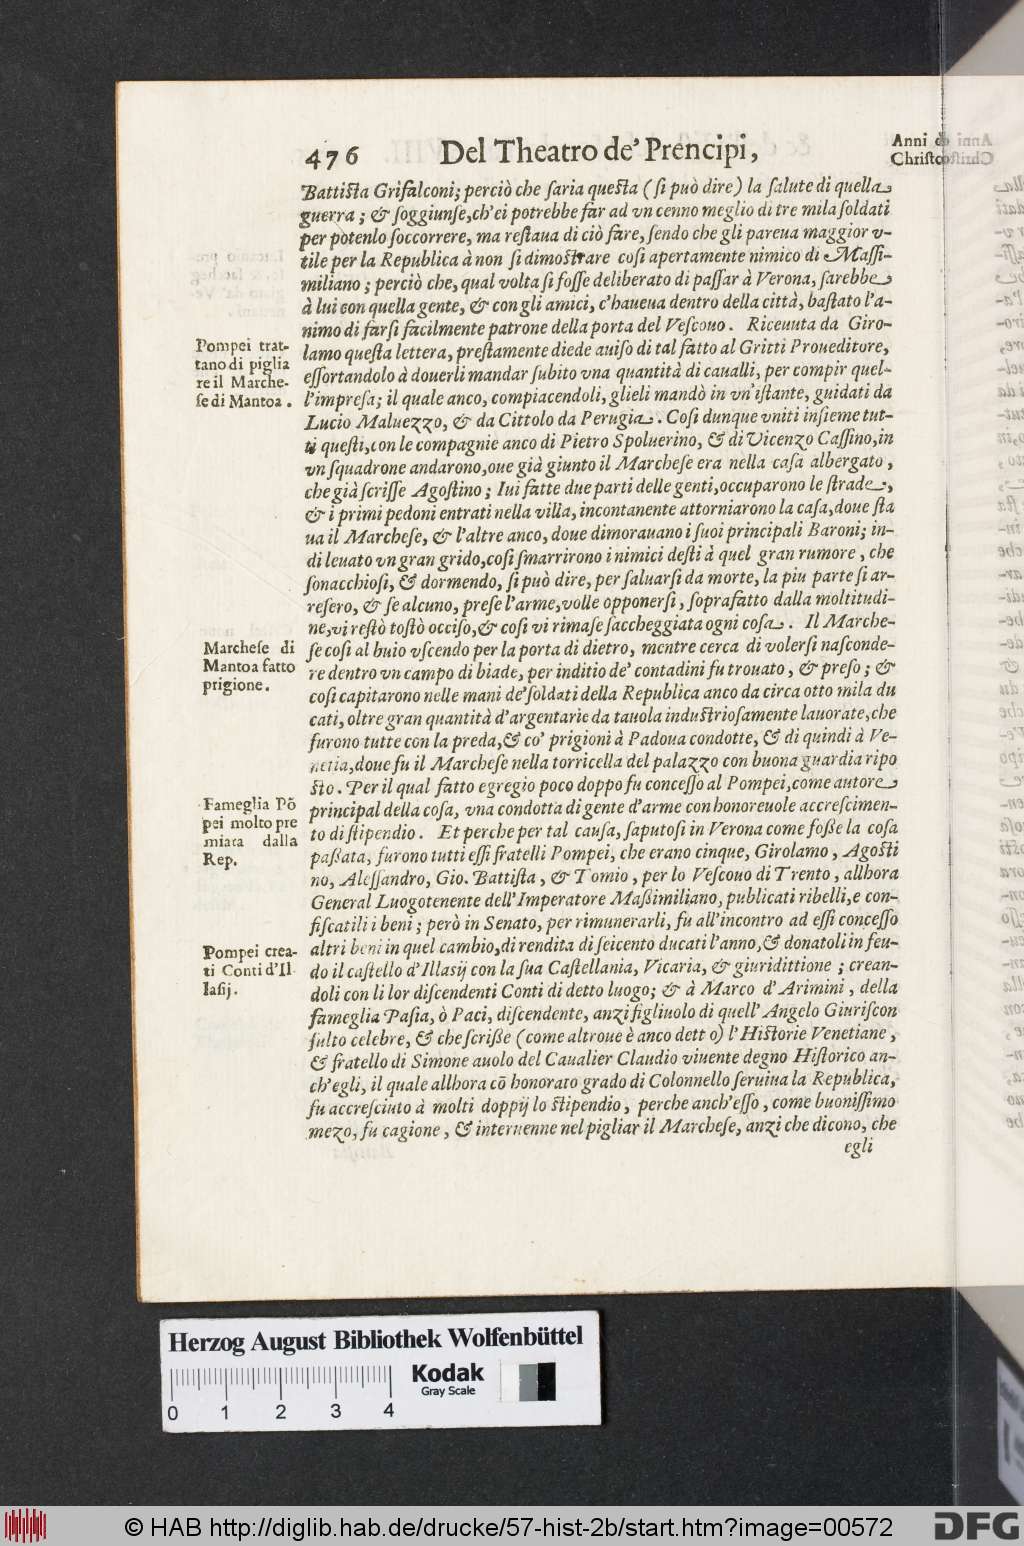 476 Del Theatro de' Prencipi,
Anni di
Christo
Battista Grifalconi; perciò che ſaria queſta (ſi può dire) la ſalute di quella
guerra; & ſoggiunſe, ch'ei potrebbe far ad vn cenno meglio di tre mila ſoldati
per potenlo ſoccorrere, ma reſtaua di ciò fare, ſendo che gli pareua maggior v-
tile per la Republica à non ſi dimoſtrare coſi apertamente nimico di Maſſi-
miliano; perciò che, qual volta ſi foſſe deliberato di paſſar à Verona, ſarebbe
à lui con quella gente, & con gli amici, c'haueua dentro della città, baſtato l'a-
nimo di farſi facilmente patrone della porta del Veſcouo. Riceuuta da Giro-
lamo queſta lettera, preſtamente diede auiſo di tal fatto al Gritti Proueditore,
eſſortandolo à douerli mandar ſubito vna quantità di caualli, per compir quel-
l'impreſa; il quale anco, compiacendoli, glieli mandò in vn'iſtante, guidati da
Lucio Maluezzo, & da Cittolo da Perugia. Coſi dunque vniti inſieme tut-
ti queſti, con le compagnie anco di Pietro Spoluerino, & di Vicenzo Caſſino, in
vn ſquadrone andarono, oue già giunto il Marcheſe era nella caſa albergato,
che già ſcriſſe Agoſtino; Iui fatte due parti delle genti, occuparono le ſtrade,
& i primi pedoni entrati nella villa, incontanente attorniarono la caſa, doue ſta
ua il Marcheſe, & l'altre anco, doue dimorauano i ſuoi principali Baroni; in-
di leuato vn gran grido, coſi ſmarrirono i nimici deſti à quel gran rumore, che
ſonacchioſi, & dormendo, ſi può dire, per ſaluarſi da morte, la piu parte ſi ar-
reſero, & ſe alcuno, preſe l'arme, volle opponerſi, ſoprafatto dalla moltitudi-
ne, vi reſtò toſto occiſo, & coſi vi rimaſe ſaccheggiata ogni coſa. Il Marche-
ſe coſi al buio vſcendo per la porta di dietro, mentre cerca di volerſi naſconde-
re dentro vn campo di biade, per inditio de' contadini fu trouato, & preſo; &
coſi capitarono nelle mani de' ſoldati della Republica anco da circa otto mila du
cati, oltre gran quantità d'argentarie da tauola induſtrioſamente lauorate, che
furono tutte con la preda, & co' prigioni à Padoua condotte, & di quindi à Ve-
netia, doue fu il Marcheſe nella torricella del palazzo con buona guardia ripo
ſto. Per il qual fatto egregio poco doppo fu conceſſo al Pompei, come autore
principal della coſa, vna condotta di gente d'arme con honoreuole accreſcimen-
to di ſtipendio. Et perche per tal cauſa, ſaputoſi in Verona come foſſe la coſa
paſſata, furono tutti eſſi fratelli Pompei, che erano cinque, Girolamo, Agoſti
no, Aleſſandro, Gio. Battiſta, & Tomio, per lo Veſcouo di Trento, allhora
General Luogotenente dell'Imperatore Maſſimiliano, publicati ribelli, e con-
fiſcatili i beni; però in Senato, per rimunerarli, fu all'incontro ad eſſi conceſſo
altri beni in quel cambio, di rendita di ſeicento ducati l'anno, & donatoli in feu-
do il caſtello d'Illaſij con la ſua Caſtellania, Vicaria, & giuridittione; crean-
doli con li lor diſcendenti Conti di detto luogo; & à Marco d'Arimini, della
fameglia Paſia, ò Paci, diſcendente, anzi figliuolo di quell'Angelo Giuriſcon
ſulto celebre, & che ſcriſſe (come altroue è anco detto) l'Hiſtorie Venetiane,
& fratello di Simone auolo del Caualier Claudio viuente degno Hiſtorico an-
ch'egli, il quale allhora cō honorato grado di Colonnello ſeruiua la Republica,
fu accreſciuto à molti doppij lo ſtipendio, perche anch'eſſo, come buoniſſimo
mezo, fu cagione, & interuenne nel pigliar il Marcheſe, anzi che dicono, che
egli
Pompei trat-
tano di piglia
re il Marche-
ſe di Mantoa.
Marcheſe di
Mantoa fatto
prigione.
Fameglia Pō
pei molto pre
miata dalla
Rep.
Pompei crea-
ti Conti d'Il
laſij.
Herzog August Bibliothek Wolfenbüttel
Kodak
Gray Scale
0 1 2 3 4
© HAB http://diglib.hab.de/drucke/57-hist-2b/start.htm?image=00572
DFG